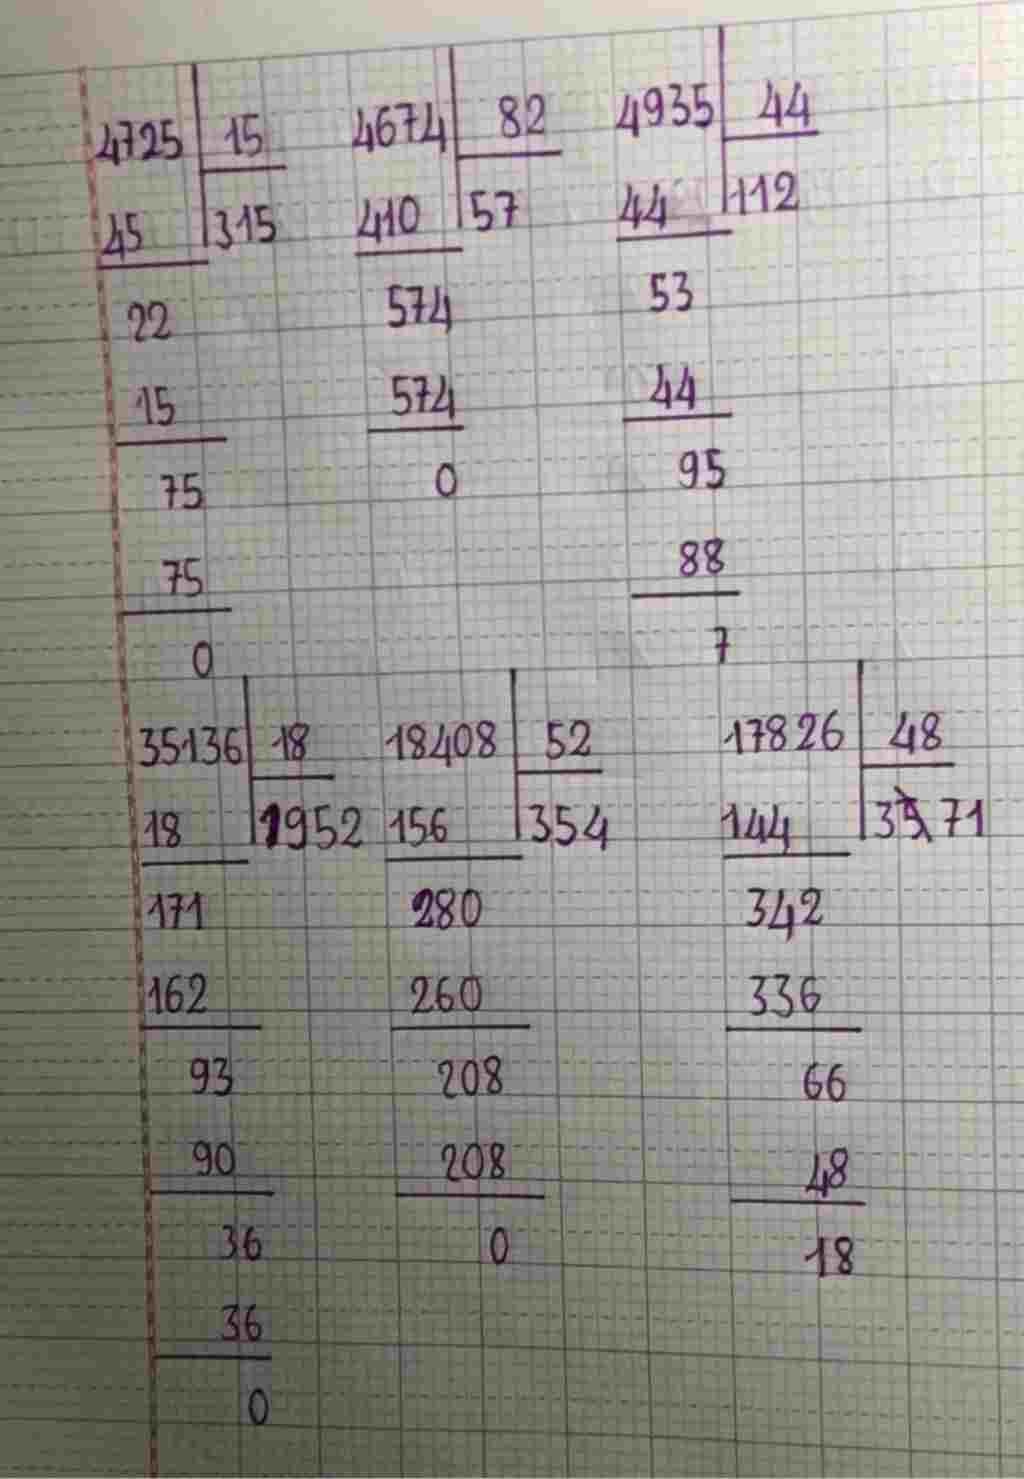 4725 15
45 315
22
15
75
75
0
4674 82
410 57
574
574
0
4935 44
44 112
53
44
95
88
7
35136 18
18 1952
171
162
93
90
36
36
0
18408 52
156 354
280
260
208
208
0
17826 48
144 371
342
336
66
48
18